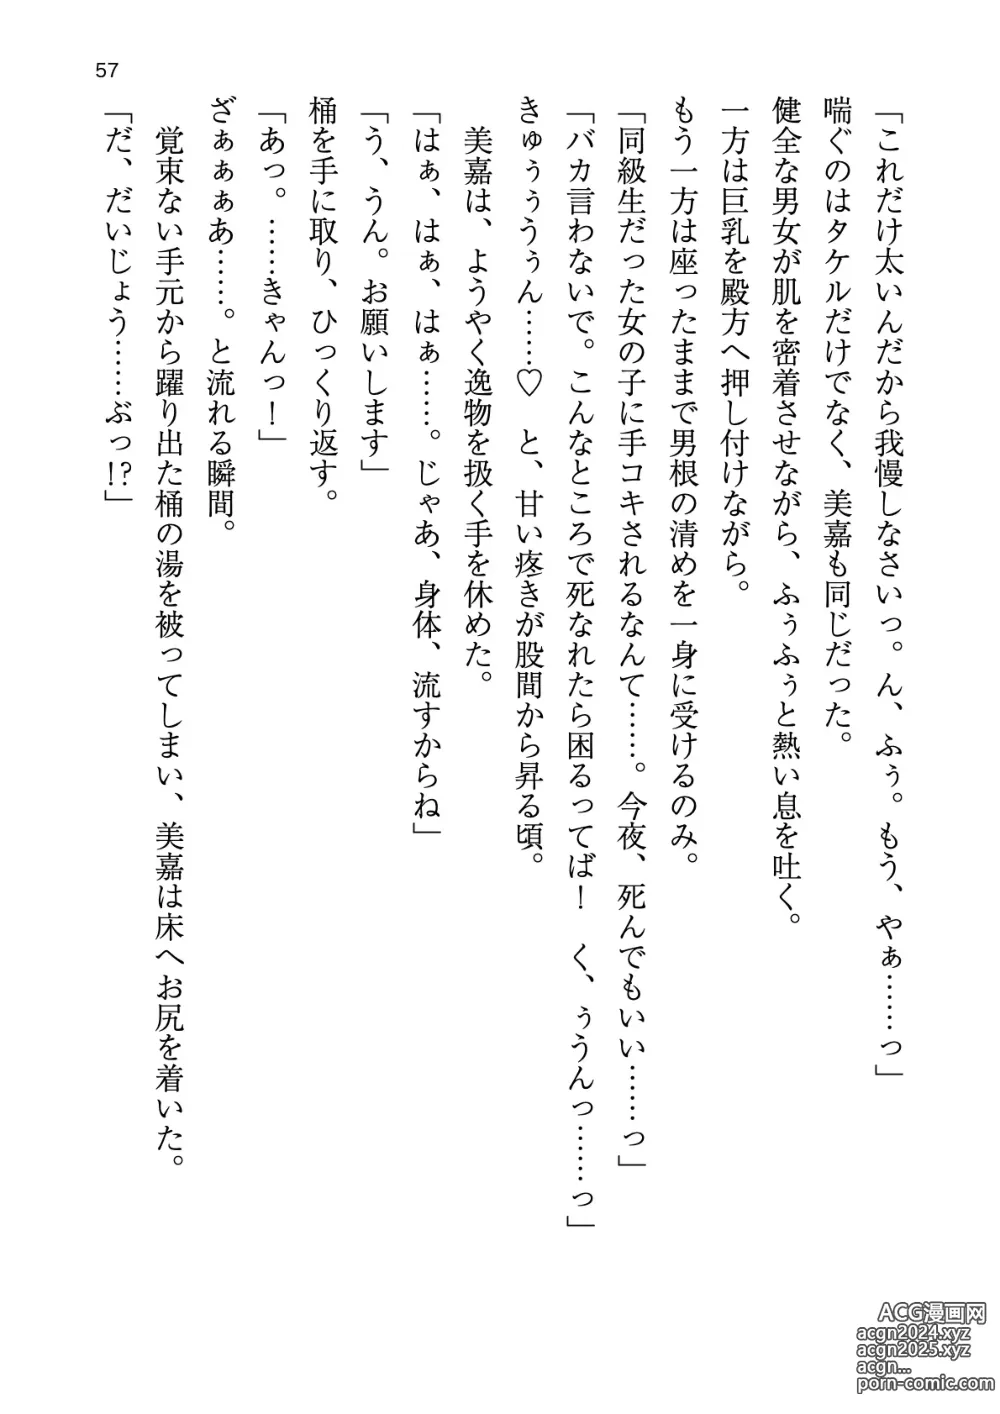 57
「これだけ太いんだから我慢しなさいっ。ん、ふぅ。もう、やぁ……っ」
喘ぐのはタケルだけでなく、美嘉も同じだった。
健全な男女が肌を密着させながら、ふぅふぅと熱い息を吐く。
一方は巨乳を殿方へ押し付けながら。
もう一方は座ったままで男根の清めを一身に受けるのみ。
「同級生だった女の子に手コキされるなんて……。今夜、死んでもいい……っ」
「バカ言わないで。こんなところで死なれたら困るってば！　く、ぅうんっ……っ」
きゅぅぅうぅん……♡　と、甘い疼きが股間から昇る頃。
美嘉は、ようやく逸物を扱く手を休めた。
「はぁ、はぁ、はぁ……。じゃあ、身体、流すからね」
「う、うん。お願いします」
桶を手に取り、ひっくり返す。
「あっ。……きゃんっ！」
ざぁぁぁあ……。と流れる瞬間。
覚束ない手元から躍り出た桶の湯を被ってしまい、美嘉は床へお尻を着いた。
「だ、だいじょう……ぶっ!?」
ACG漫画网
acgn2024.xyz
acgn2025.xyz
acgn...
porn-comic.com